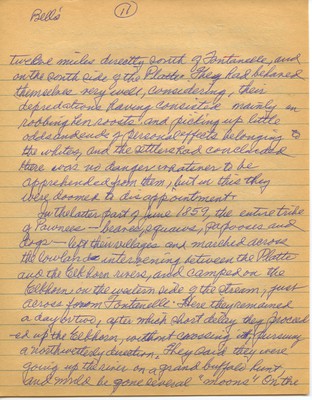 Bell's
11
twelve miles directly south of Fontanelle, and
on the south side of the Platte. They had behaved
themselves very well, considering, their
depredations having consisted mainly in
robbing hen roosts and picking up little
odds and ends of personal effects belonging to
the whites, and the settlers had concluded
there was no danger whatever to be
apprehended from them, but in this they
were doomed to disappointment.
In the latter part of June 1859, the entire tribe
of Pawnees -- braves, squaws, papooses and
dogs -- left their villages and marched across
the lowlands intervening between the Platte
and the Elkhorn rivers, and camped on the
Elkhorn on the western side of the stream, just
across from Fontanelle. Here they remained
a day or two, after which short delay they proceed-
ed up the Elkhorn, without crossing it, pursuing
a northwesterly direction. They said they were
going up the river on a grand buffalo hunt,
and would be gone several "moons". On the